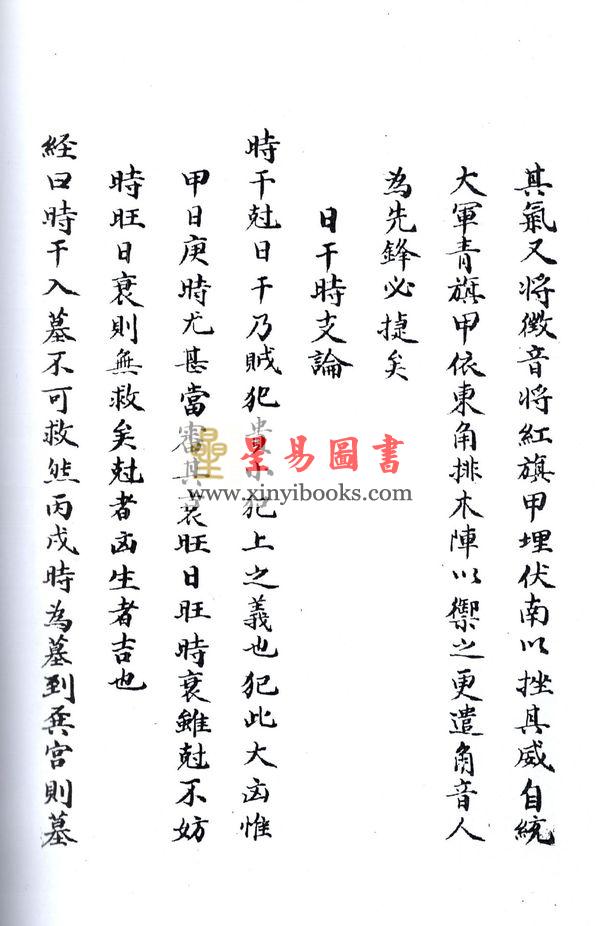 其氣又將徵音將紅旗甲埋伏南以挫其威自統
大軍青旗甲依東角排木陣以禦之更遣角音人
為先鋒必捷矣
日干時支論
時干尅日干乃賊犯犯上之義也犯此大凶惟
甲日庚時尤甚當審其衰旺日旺時衰雖尅不妨
時旺日衰則無救矣尅者凶生者吉也
経曰時干入墓不可救然丙戌時為墓到巽宮則墓
星易圖書
www.xinyibooks.com